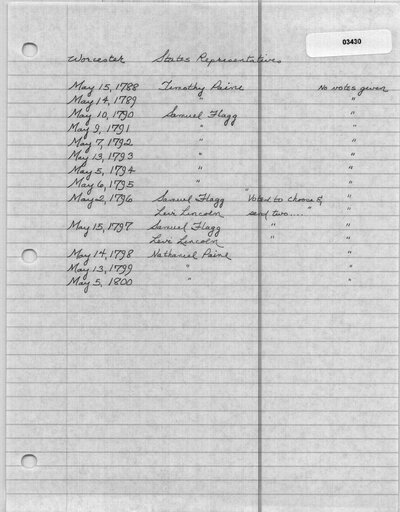 03430
Worcester States Representatives
May 15, 1788 Timothy Paine No votes given
May 14, 1789 " "
May 10, 1790 Samuel Flagg "
May 9, 1791 " "
May 7, 1792 " "
May 13, 1793 " "
May 5, 1794 " "
May 6, 1795 " "
May 2, 1796 Samuel Flagg "Voted to choose & "
Levi Lincoln send two...." "
May 15, 1797 Samuel Flagg " "
Levi Lincoln " "
May 14, 1798 Nathaniel Paine "
May 13, 1799 " "
May 5, 1800 " "